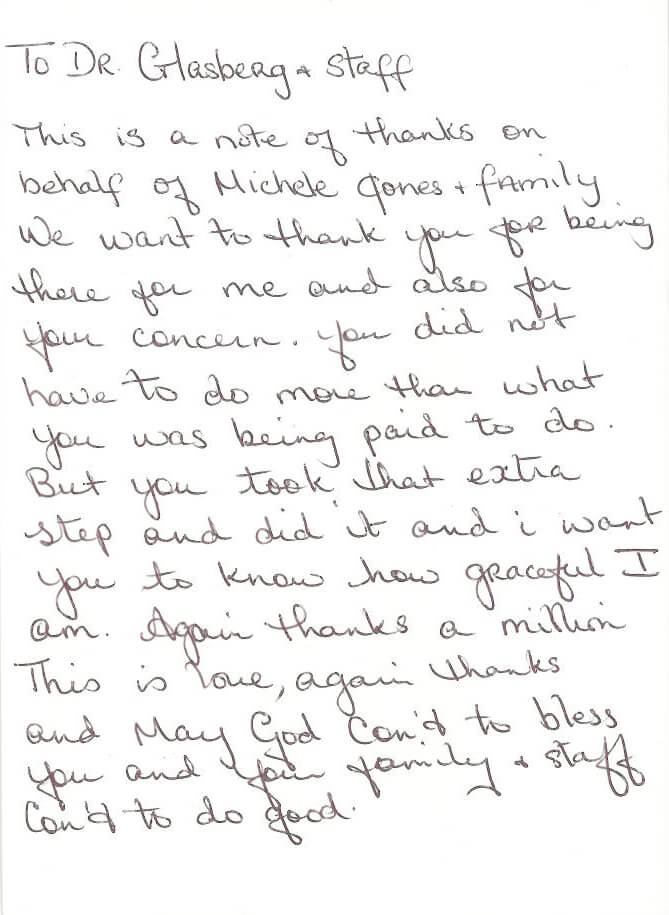 To Dr. Glasberg + Staff
This is a note of thanks on
behalf of Michele Jones + family
We want to thank you for being
there for me and also for
your concern. You did not
have to do more than what
you was being paid to do.
But you took that extra
step and did it and i want
you to know how graceful I
am. Again thanks a million
This is love, again thanks
and May God Con'd to bless
you and your family + staff
Con'd to do good.